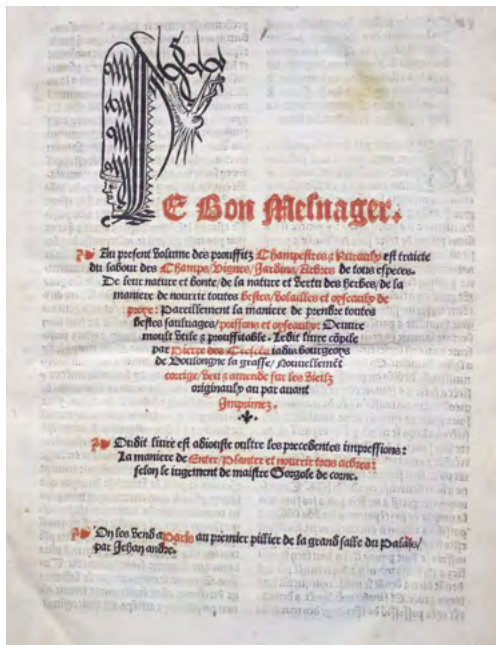 LE Bon Mesnager.
Au present volume des prouffitz Champestres & Ruraulx est traicte
du labour des Champs/Vignes/Jardins/Arbres de tous especes.
De leur nature et bonte/de la nature et vertu des herbes/de la
maniere de nourrir toutes bestes/volailles et oyseaulx de
proye: Pareillement la maniere de prendre toutes
bestes saulvages/poissons et oyseaulx: Oeuvre
moult utile & prouffitable. Ledit livre cõpile
par Pierre des Crescẽs iadis bourgeoys
de Boulongne la grasse/Nouvellemẽt
corrige/veu & amende sur les vieilz
originaulx au par auant
Imprimez.
Oudit livre est adiouste oultre les precedentes impressions:
La maniere de Enter/Planter et nourrir tous arbres:
selon le iugement de maistre Gorgole de corne.
On les vend a Paris au premier pillier de la grand salle du Palais/
par Jehan andre.